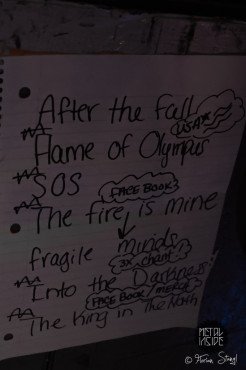 After the fall
Flame of Olympus
SOS
FACE BOOK
The fire is mine
fragile minds
3x chant
Into the Darkness
FACE BOOK / MERCH
The King in The North
METAL
INSIDE
©